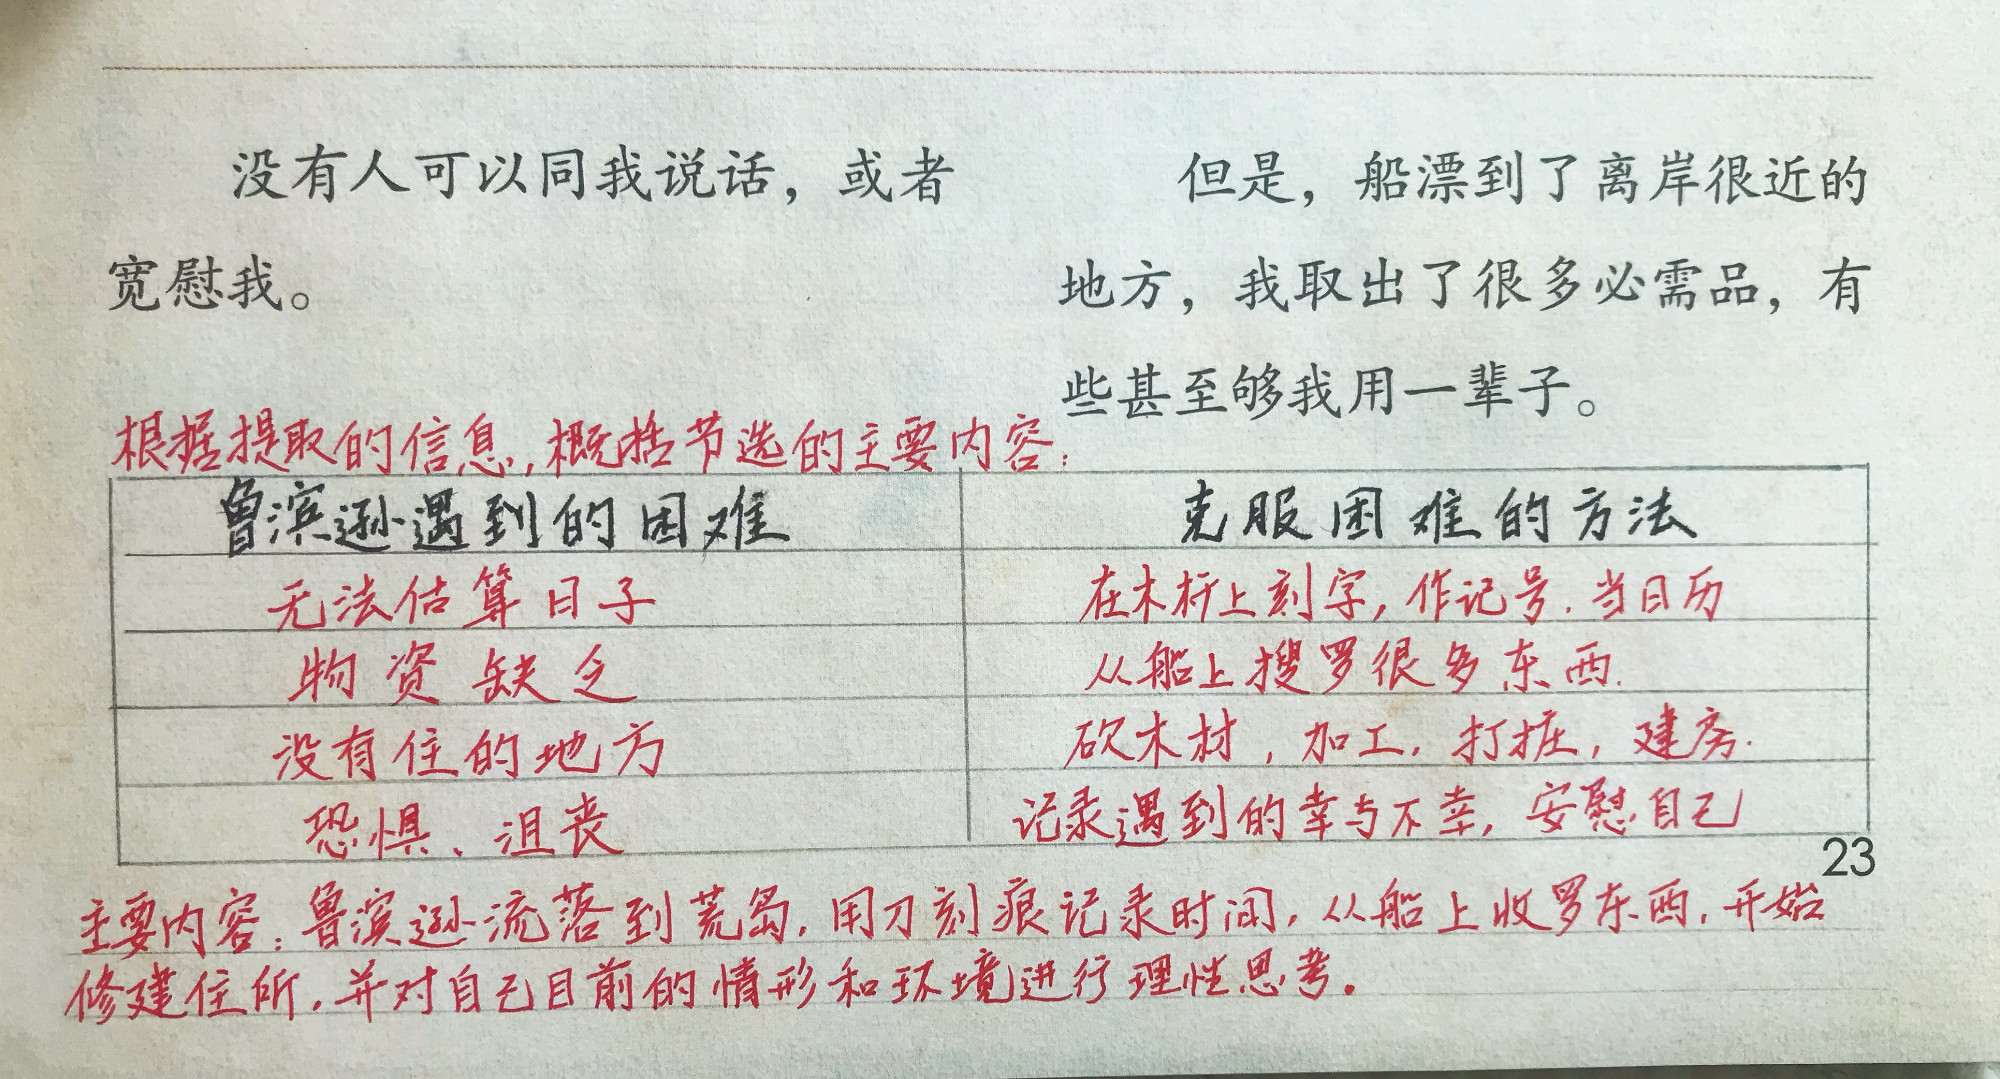 没有人可以同我说话，或者
宽慰我。
但是，船漂到了离岸很近的
地方，我取出了很多必需品，有
些甚至够我用一辈子。
根据提取的信息，概括节选的主要内容：
鲁滨逊遇到的困难
克服困难的方法
无法估算日子
在木杆上刻字，作记号.当日历
物资缺乏
从船上搜罗很多东西.
没有住的地方
砍木材，加工.打桩，建房.
恐惧、沮丧
记录遇到的幸与不幸，安慰自己
23
主要内容：鲁滨逊流落到荒岛，用刀刻痕记录时间，从船上收罗东西，开始
修建住所，并对自己目前的情形和环境进行理性思考。